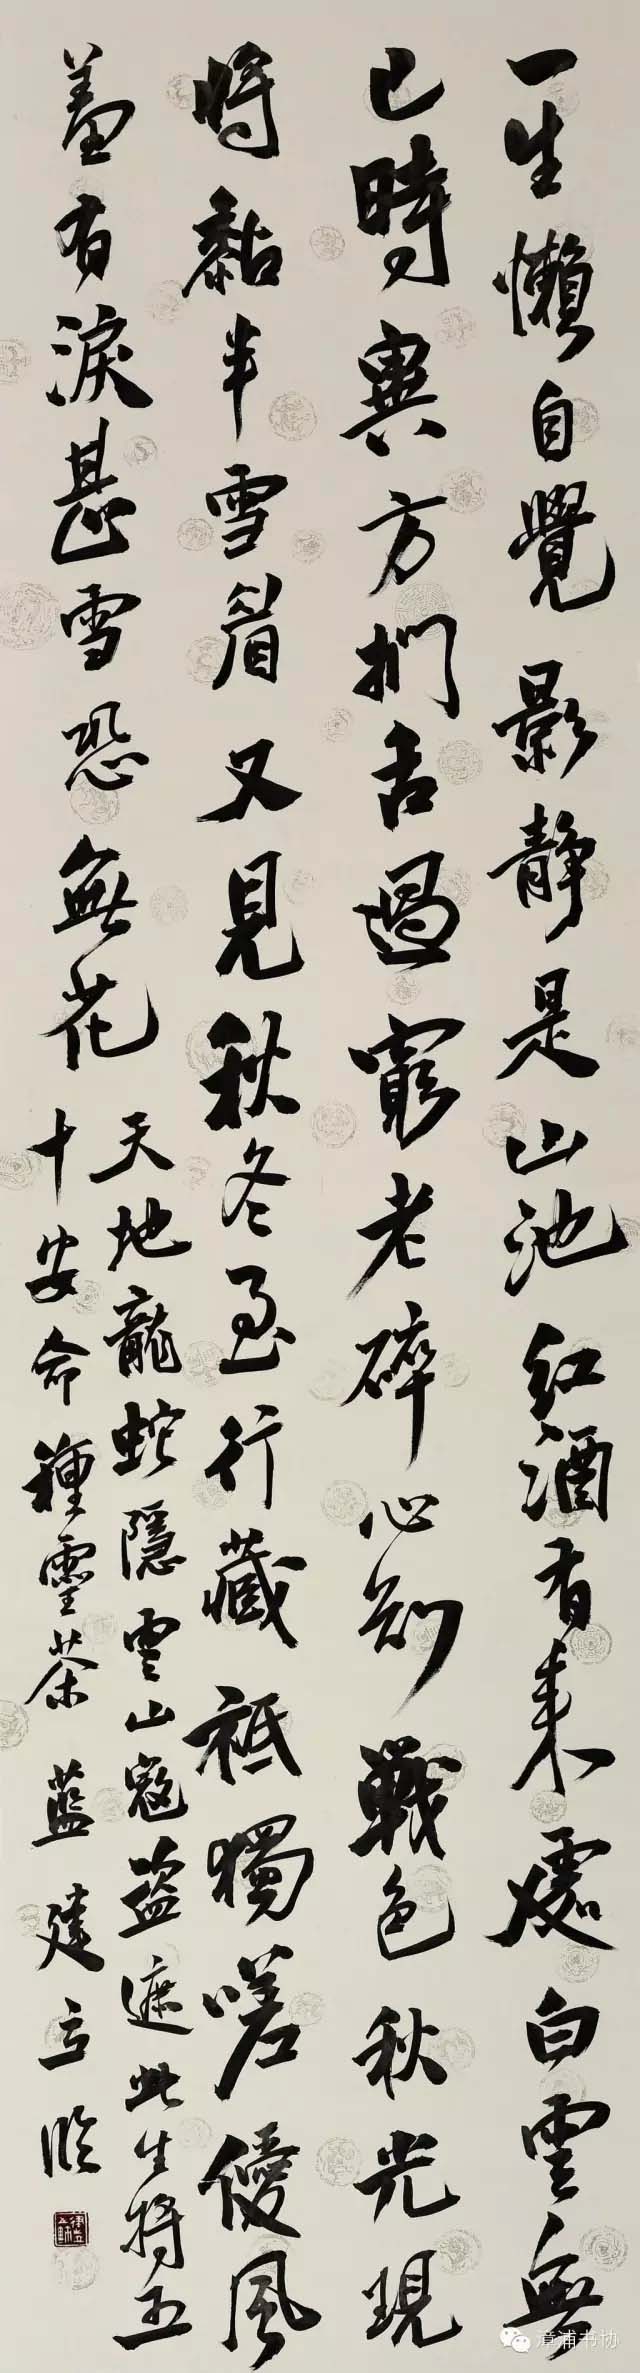 一生懒自覺影静是山池红酒有来處白雲無
已時興方捫舌過窮老碎心知戰色秋光現
將黏半雪眉又見秋冬至行藏祗獨嗟優風
羞有淚甚雪恐無花
天地龍蛇隱雲山寇盗遮此生將五
十安命種靈茶 藍建
漳浦书协